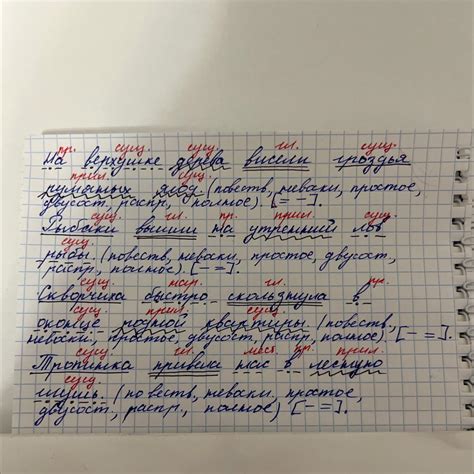 пр. сущ. сущ. гл. сущ.
На верхушке дерева висели гроздья
прил. сущ.
румяных ягод. (повеств, невоскл, простое,
двусост, распр, полное). [= -].
сущ. гл. пр. прил. сущ.
Рыбаки вышли на утренний лов
сущ.
рыбы. (повеств, невоскл, простое, двусост,
распр, полное). [- =].
сущ. нар. гл. пр.
Скворчиха быстро скользнула в
сущ. прил. сущ.
оконце родной квартиры. (повеств,
невоскл, простое, двусост, распр, полное). [- =].
сущ. гл. мест. пр. прил.
Тропинка привела нас в лесную
сущ.
глушь. (повеств, невоскл, простое,
двусост., распр., полное) [- =].